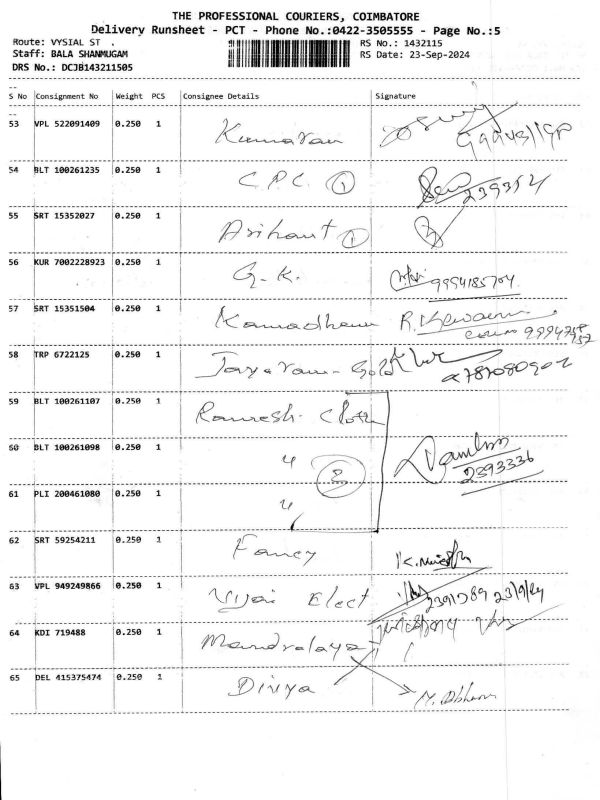 THE PROFESSIONAL COURIERS, COIMBATORE
Delivery Runsheet - PCT - Phone No.:0422-3505555 - Page No.:5
Route: VYSIAL ST . RS No.: 1432115
Staff: BALA SHANMUGAM RS Date: 23-Sep-2024
DRS No.: DCJB143211505
S No Consignment No Weight PCS Consignee Details Signature
53 VPL 522091409 0.250 1 Kumaran
54 BLT 100261235 0.250 1 C.P.C. 1 239352
55 SRT 15352027 0.250 1 Arihant 1
56 KUR 7002228923 0.250 1 G.K. 9994185704
57 SRT 15351504 0.250 1 Kamadhenu R.
58 TRP 6722125 0.250 1 Jayaram Gold
59 BLT 100261107 0.250 1 Ramesh Cloth
60 BLT 100261098 0.250 1 " 3 2393336
61 PLI 200461080 0.250 1 "
62 SRT 59254211 0.250 1 Fancy
63 VPL 949249866 0.250 1 Vijai Elect 2391789 23/9/24
64 KDI 719488 0.250 1 Mandralaya
65 DEL 415375474 0.250 1 Diviya M.